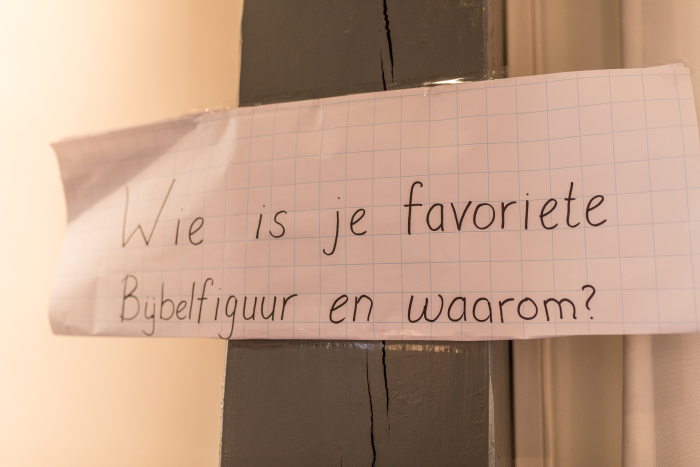 Wie is je favoriete
Bijbelfiguur en waarom?